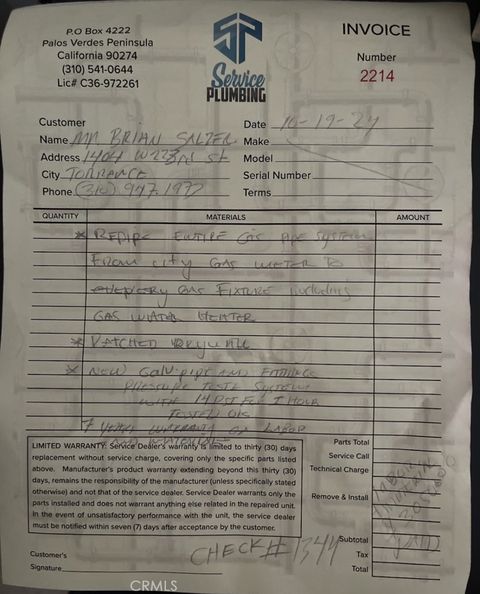 P.O Box 4222
Palos Verdes Peninsula
California 90274
(310) 541-0644
Lic# C36-972261
SP
Service
PLUMBING
INVOICE
Number
2214
Customer
Name MR BRIAN SALZER
Address 1404 W 223RD St
City TORRANCE
Phone (310) 947.1977
Date 10-19-24
Make
Model
Serial Number
Terms
QUANTITY MATERIALS AMOUNT
* REPIPE ENTIRE GAS PIPE SYSTEM
FROM city GAS METER TO
EVERY GAS FIXTURE including
GAS WATER HEATER
* PATCHED DRYWALL
* NEW GALV-PIPE AND FITTINGS
PRESSURE TESTED SYSTEM
WITH 14 PSI FOR 1 HOUR
TESTED
7 YEARS WARRANTY ON LABOR
LIMITED WARRANTY: Service Dealer's warranty is limited to thirty (30) days
replacement without service charge, covering only the specific parts listed
above. Manufacturer's product warranty extending beyond this thirty (30)
days, remains the responsibility of the manufacturer (unless specifically stated
otherwise) and not that of the service dealer. Service Dealer warrants only the
parts installed and does not warrant anything else related in the repaired unit.
In the event of unsatisfactory performance with the unit, the service dealer
must be notified within seven (7) days after acceptance by the customer.
Parts Total
Service Call
Technical Charge
Remove & Install
Subtotal
Tax
Total
LABOR
MATERIAL
PAID
Customer's
Signature
CHECK# 1344
CRMLS